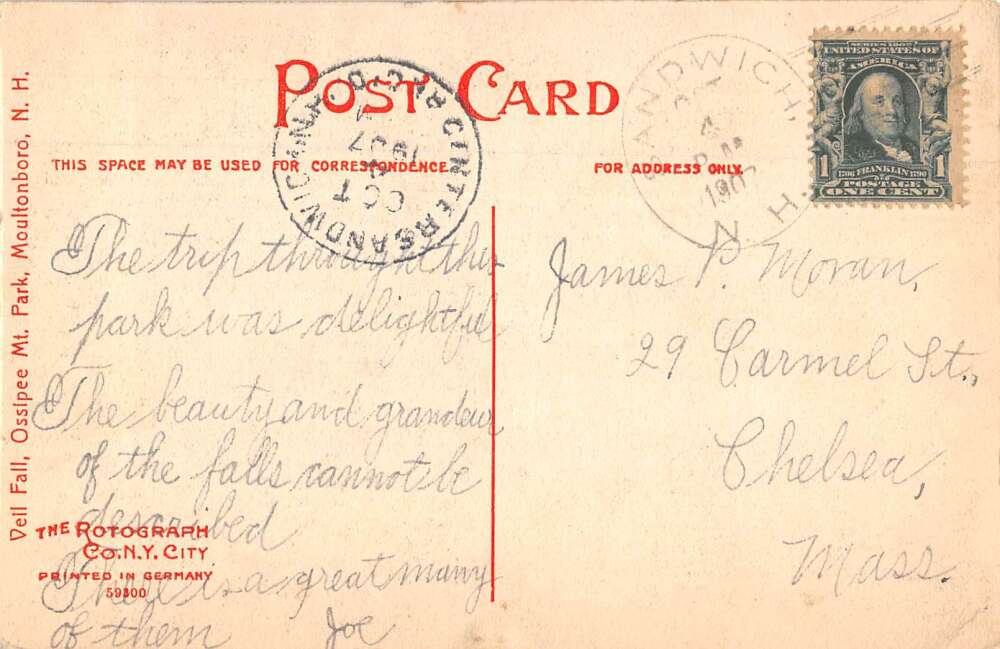 POST CARD
THIS SPACE MAY BE USED FOR CORRESPONDENCE
FOR ADDRESS ONLY.
SERIES 1902
UNITED STATES OF
AMERICA
1706 FRANKLIN 1790
POSTAGE
1 ONE CENT 1
SANDWICH,
4
1907
N. H.
CENTER SANDWICH, N.H.
REC'D.
OCT
1907
The trip through this
park was delightful
The beauty and grandeur
of the falls cannot be
described
There is a great many
of them Joe
James P. Moran,
29 Carmel St.,
Chelsea,
Mass.
Veil Fall, Ossipee Mt. Park, Moultonboro, N. H.
THE ROTOGRAPH
CO. N.Y. CITY
PRINTED IN GERMANY
59300